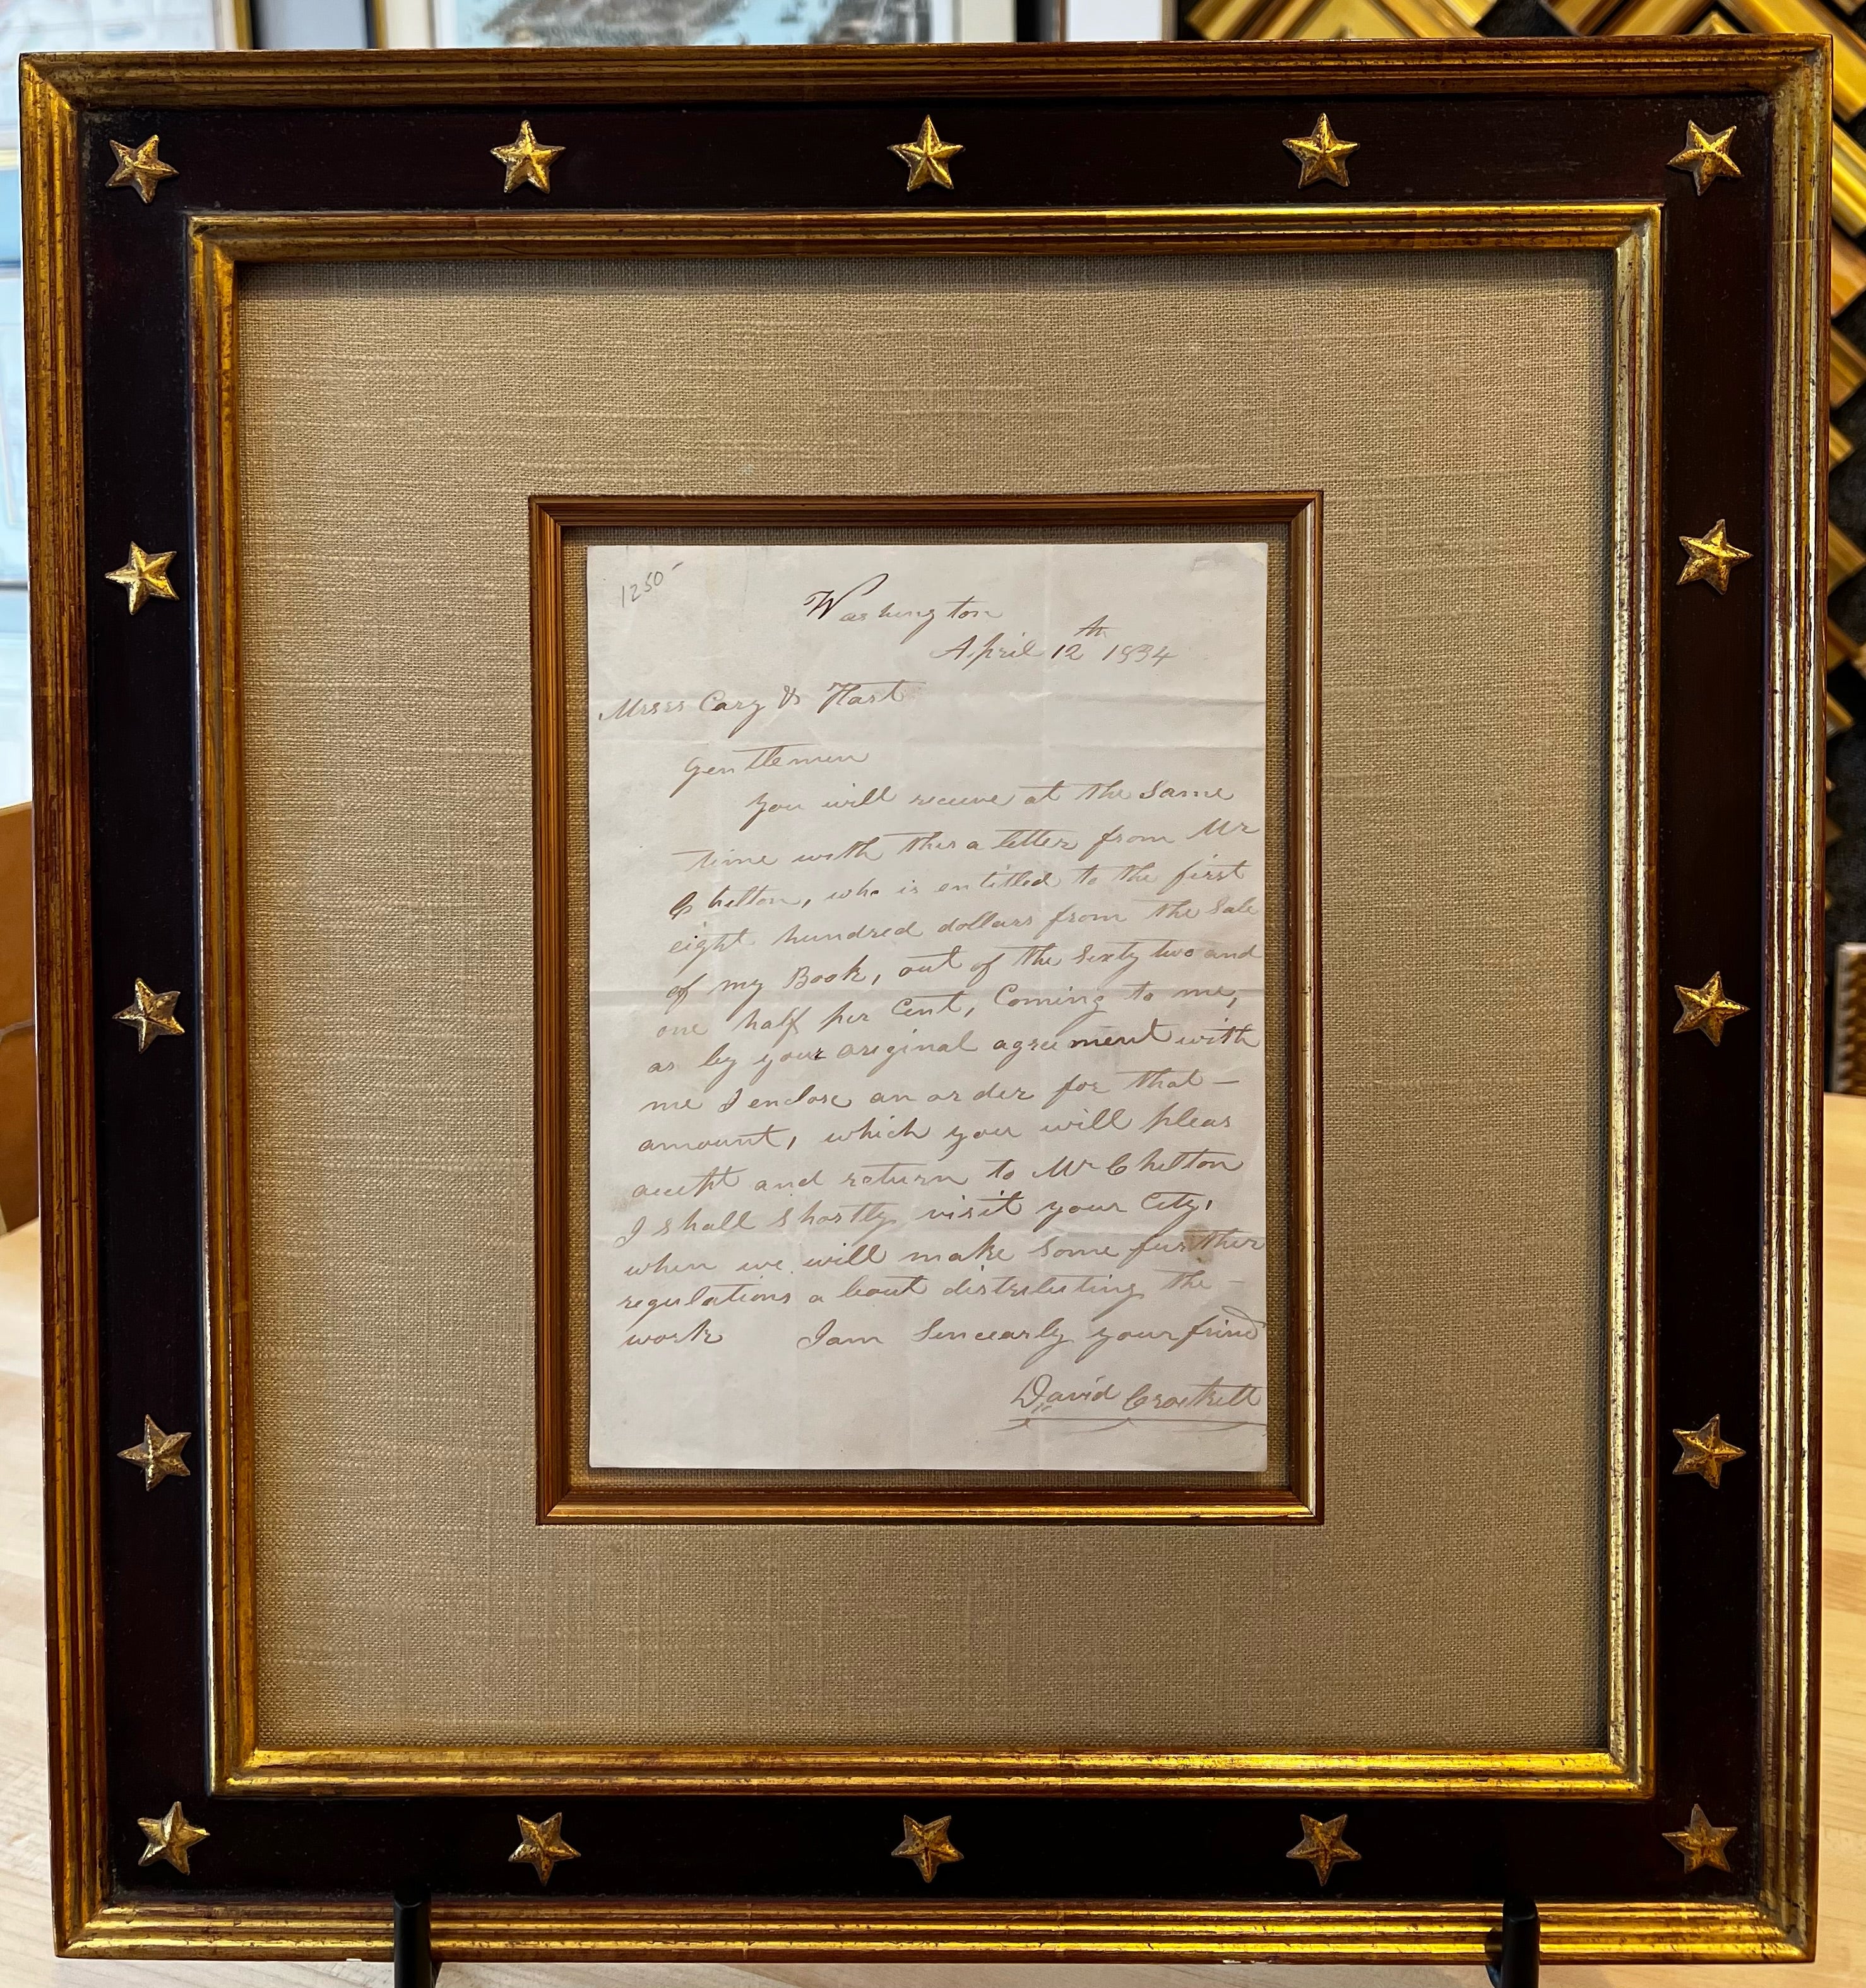 1250-
Washington
April 12th 1834
Messrs Cary & Hart
Gentlemen
you will receive at the Same
time with this a letter from Mr
Chilton, who is entitled to the first
eight hundred dollars from the Sale
of my Book, out of the Sixty two and
one half per Cent, Coming to me,
as by your original agreement with
me I enclose an order for that -
amount, which you will pleas
accept and return to Mr Chilton
I shall shortly visit your City,
when we will make Some further
regulations about distributing the -
work I am Sincearly your friend
David Crockett